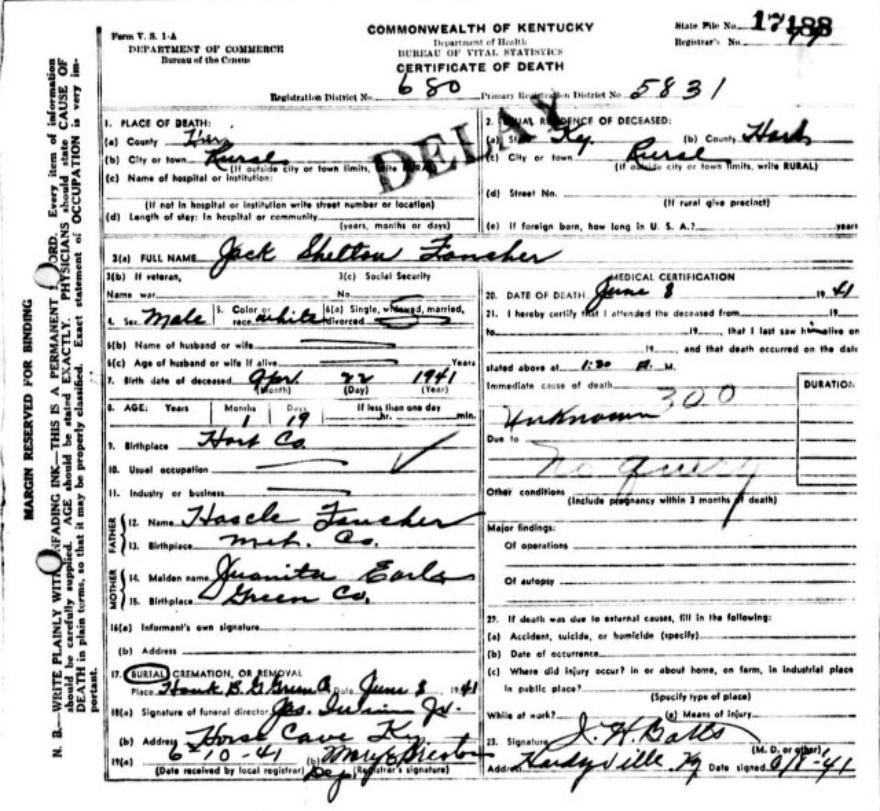 MARGIN RESERVED FOR BINDING
N. B.—WRITE PLAINLY WITH UNFADING INK—THIS IS A PERMANENT RECORD. Every item of information
should be carefully supplied. AGE should be stated EXACTLY. PHYSICIANS should state CAUSE OF
DEATH in plain terms, so that it may be properly classified. Exact statement of OCCUPATION is very im-
portant.
Form V. S. 1-A
DEPARTMENT OF COMMERCE
Bureau of the Census
COMMONWEALTH OF KENTUCKY
Department of Health
BUREAU OF VITAL STATISTICS
CERTIFICATE OF DEATH
State File No. 17188
Registrar's No.
Registration District No. 680 Primary Registration District No. 5831
DELAY
1. PLACE OF DEATH:
(a) County
(b) City or town Rural
(If outside city or town limits, write RURAL)
(c) Name of hospital or institution:
(If not in hospital or institution write street number or location)
(d) Length of stay: In hospital or community
(years, months or days)
2. USUAL RESIDENCE OF DECEASED:
(a) State Ky. (b) County Hart
(c) City or town Rural
(If outside city or town limits, write RURAL)
(d) Street No.
(If rural give precinct)
(e) If foreign born, how long in U. S. A.? years
3(a) FULL NAME Jack Shelton Fancher
3(b) If veteran, 3(c) Social Security
Name war No.
4. Sex Male 5. Color or race white 6(a) Single, widowed, married, divorced S
6(b) Name of husband or wife
6(c) Age of husband or wife if alive Years
7. Birth date of deceased Apr. 22 1941
(Month) (Day) (Year)
8. AGE: Years Months Days If less than one day
1 19 hr. min.
9. Birthplace Hart Co.
10. Usual occupation
11. Industry or business
FATHER
12. Name Hascle Fancher
13. Birthplace Met. Co.
MOTHER
14. Maiden name Juanita Earls
15. Birthplace Green Co.
16(a) Informant's own signature
(b) Address
17. BURIAL, CREMATION, OR REMOVAL
Place Date June 8 1941
18(a) Signature of funeral director Jas. Irwin Jr.
(b) Address Horse Cave Ky
19(a) 6-10-41 (b) Mary E Preston
(Date received by local registrar) Dep. (Registrar's signature)
MEDICAL CERTIFICATION
20. DATE OF DEATH June 8 1941
21. I hereby certify that I attended the deceased from 19
to 19, that I last saw him alive on
19, and that death occurred on the date
stated above at 1:30 M.
Immediate cause of death 300
DURATION
Unknown
Due to
no query
Other conditions
(Include pregnancy within 3 months of death)
Major findings:
Of operations
Of autopsy
22. If death was due to external causes, fill in the following:
(a) Accident, suicide, or homicide (specify)
(b) Date of occurrence
(c) Where did injury occur? in or about home, on farm, in industrial place
in public place?
(Specify type of place)
While at work? (e) Means of injury
23. Signature J. H. Batts
(M. D. or other)
Address Hardyville Ky Date signed